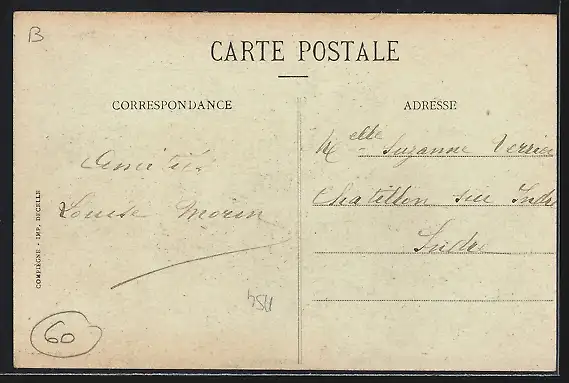 B
CARTE POSTALE
CORRESPONDANCE
ADRESSE
Melle Suzanne Verrier
Amitiés
Chatillon sur Indre
Louise Morin
Indre
COMPIÈGNE - IMP. DECELLE
60